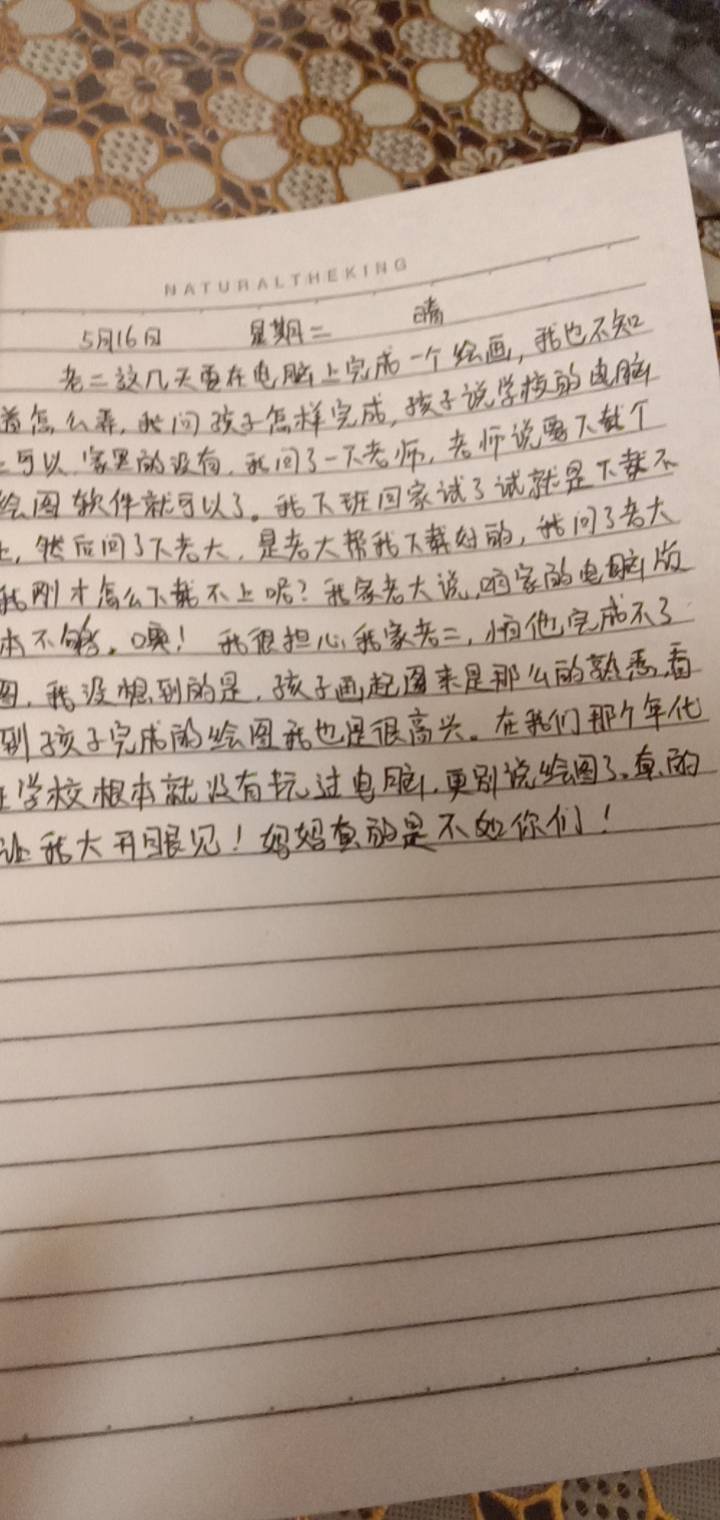 NATURALTHEKING
5月16日 星期二 晴
老二这几天要在电脑上完成一个绘画，我也不知
道怎么弄，我问孩子怎样完成，孩子说学校的电脑
上可以，家里的没有，我问了一下老师，老师说要下载个
绘图软件就可以了。我下班回家试了试就是下载不
上，然后问了下老大，是老大帮我下载好的，我问了老大
我刚才怎么下载不上呢？我家老大说，咱家的电脑版
本不够。噢！我很担心我家老二，怕他完成不了
图，我没想到的是，孩子画起图来是那么的熟悉，看
到孩子完成的绘图我也是很高兴。在我们那个年代
在学校根本就没有玩过电脑，更别说绘图了，真的
让我大开眼见！妈妈真的是不如你们！